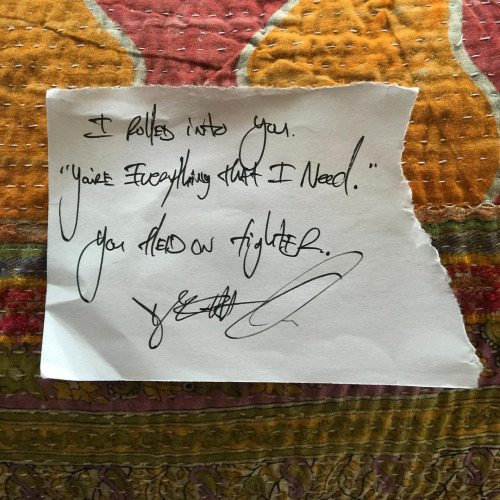 I Rolled into You.
"You're Everything that I Need."
You Held on tighter.